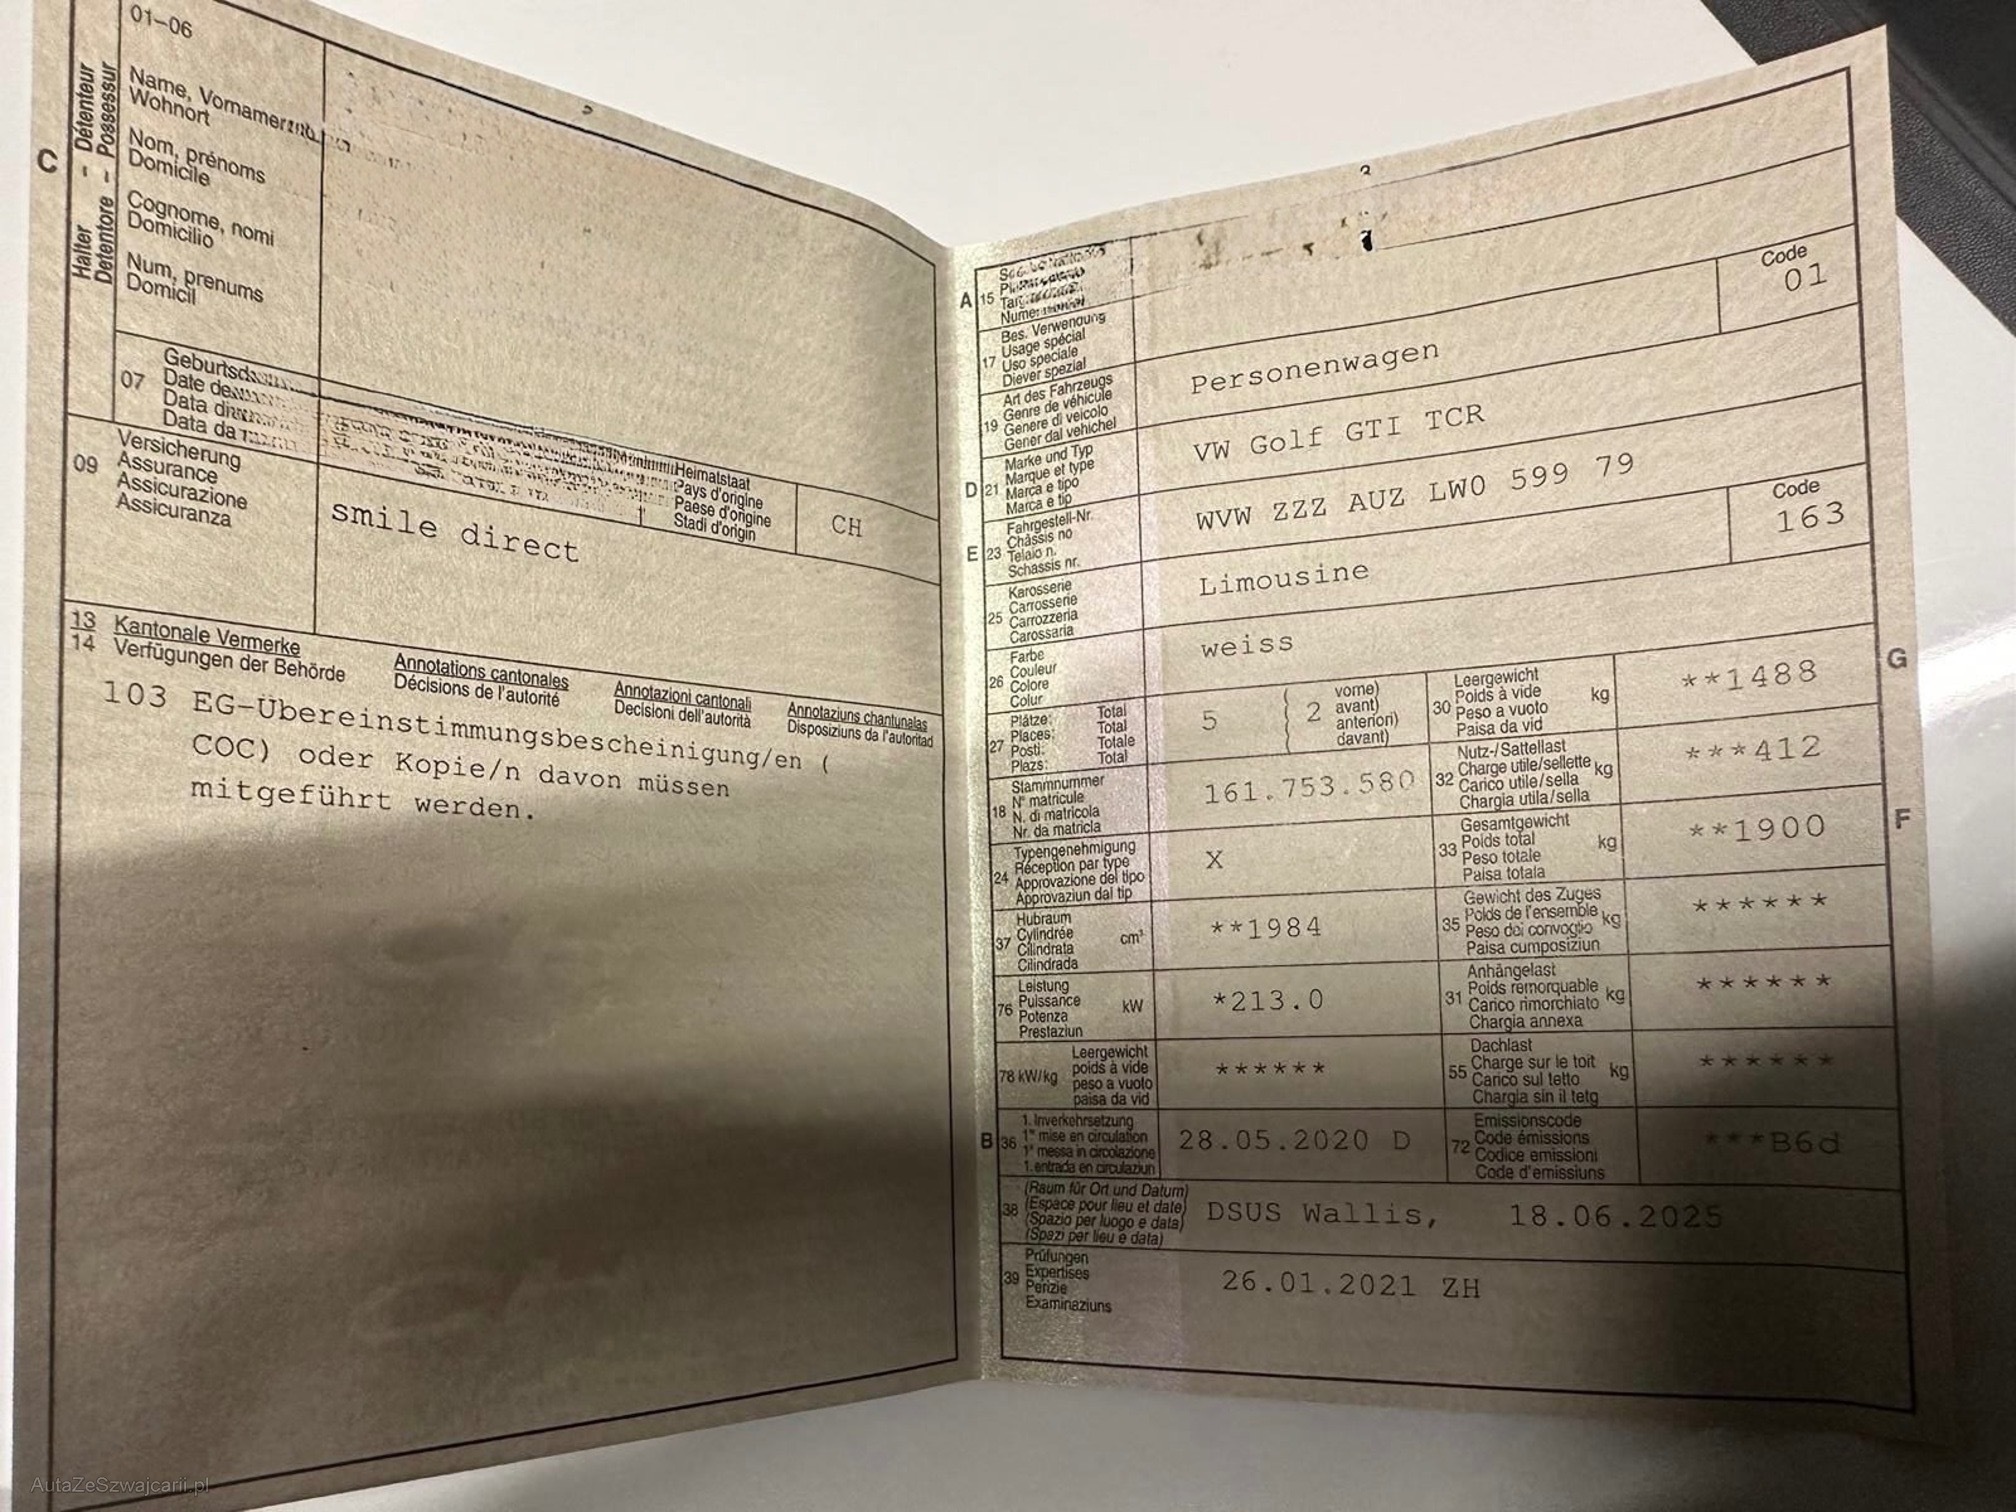 01-06
C
Halter - Détenteur
Detentore - Possessur
Name, Vornamen
Wohnort
Nom, prénoms
Domicile
Cognome, nomi
Domicilio
Num, prenums
Domicil
07
Date de
Data di
Data da
Heimatstaat
Pays d'origine
Paese d'origine
Stadi d'origin
CH
09
Versicherung
Assurance
Assicurazione
Assicuranza
smile direct
13 Kantonale Vermerke
14 Verfügungen der Behörde
Annotations cantonales
Décisions de l'autorité
Annotazioni cantonali
Decisioni dell'autorità
Annotaziuns chantunalas
Disposiziuns da l'autoritad
103 EG-Übereinstimmungsbescheinigung/en (
COC) oder Kopie/n davon müssen
mitgeführt werden.
A 15
17
Bes. Verwendung
Usage spécial
Uso speciale
Diever spezial
Code
01
19
Art des Fahrzeugs
Genre de véhicule
Genere di veicolo
Gener dal vehichel
Personenwagen
D 21
Marke und Typ
Marque et type
Marca e tipo
Marca e tip
VW Golf GTI TCR
E 23
Fahrgestell-Nr.
Châssis no
Telaio n.
Schassis nr.
WVW ZZZ AUZ LW0 599 79
25
Karosserie
Carrosserie
Carrozzeria
Carossaria
Limousine
Code
163
26
Farbe
Couleur
Colore
Colur
weiss
27
Plätze: Total
Places: Total
Posti: Totale
Plazs: Total
5
2
vorne)
avant)
anteriori)
davant)
30
Leergewicht
Poids à vide
Peso a vuoto
Paisa da vid
kg
**1488
G
18
Stammnummer
N° matricule
N. di matricola
Nr. da matricla
161.753.580
32
Nutz-/Sattellast
Charge utile/sellette
Carico utile/sella
Chargia utila/sella
kg
***412
24
Typengenehmigung
Réception par type
Approvazione del tipo
Approvaziun dal tip
X
33
Gesamtgewicht
Poids total
Peso totale
Paisa totala
kg
**1900
F
37
Hubraum
Cylindrée
Cilindrata
Cilindrada
cm³
**1984
35
Gewicht des Zuges
Poids de l'ensemble
Peso del convoglio
Paisa cumposiziun
kg
******
76
Leistung
Puissance
Potenza
Prestaziun
kW
*213.0
31
Anhängelast
Poids remorquable
Carico rimorchiato
Chargia annexa
kg
******
78 kW/kg
Leergewicht
poids à vide
peso a vuoto
paisa da vid
******
55
Dachlast
Charge sur le toit
Carico sul tetto
Chargia sin il tetg
kg
******
B 36
1. Inverkehrsetzung
1re mise en circulation
1a messa in circolazione
1. entrada en circulaziun
28.05.2020 D
72
Emissionscode
Code émissions
Codice emissioni
Code d'emissiuns
***B6d
38
(Raum für Ort und Datum)
(Espace pour lieu et date)
(Spazio per luogo e data)
(Spazi per lieu e data)
DSUS Wallis, 18.06.2025
39
Prüfungen
Expertises
Perizie
Examinaziuns
26.01.2021 ZH
AutaZeSzwajcarii.pl